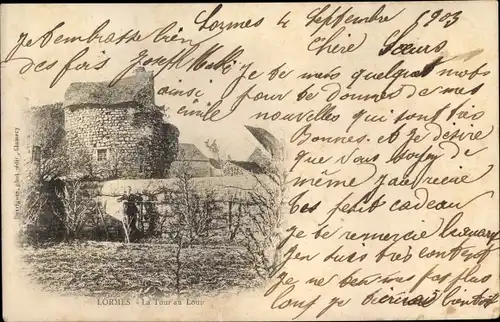 Lormes 4 Septembre 1903
Je t'embrasse bien
des fois
ainsi
émile
Chère Sœur
Je te mets quelques mots
pour te donner de mes
nouvelles qui sont très
Bonnes. et Je désire
que Vous soyez de
même J'ai recue
tes petit cadeau
je te remercie
J'en suis très content
Je ne t'en mes pas plus
long je bientôt
LORMES - La Tour au Loup
phot. édit., Clamecy